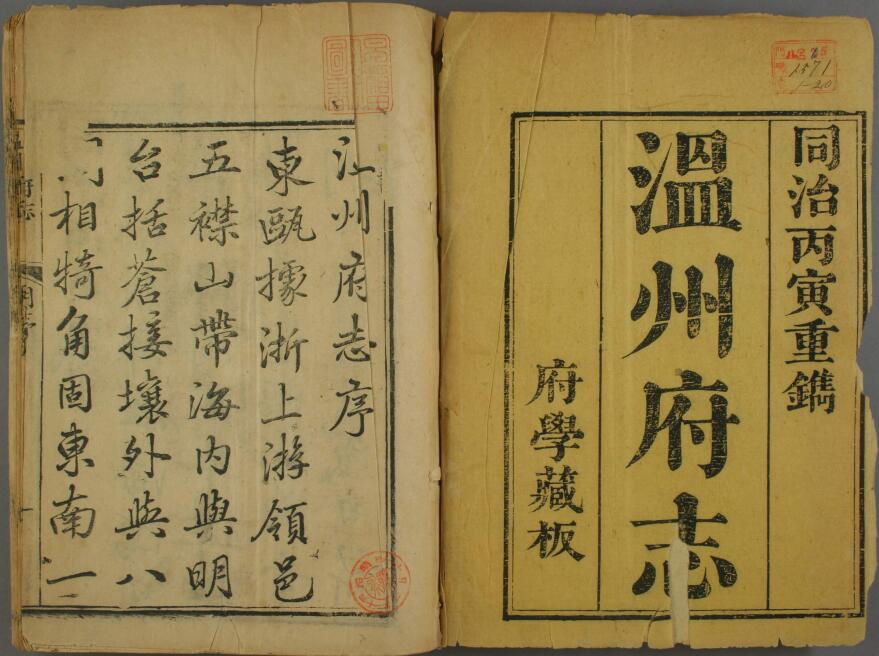 同治丙寅重鐫
溫州府志
府學藏板
1571
1-20
州府志序
東甌據浙上游領邑
五襟山帶海內與明
台括蒼接壤外與八
相犄角固東南一
府志